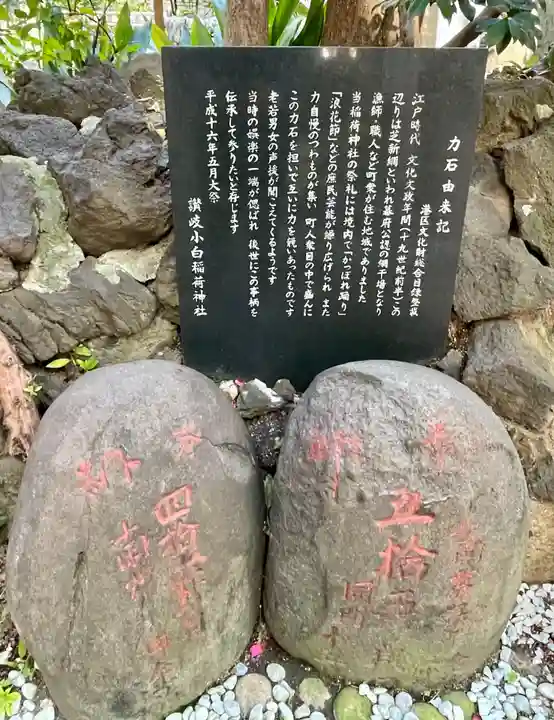 力石由来記
港区文化財総合目録登載
江戸時代 文化文政年間(十九世紀前半)この
辺りは芝新網といわれ幕府公認の網干場となり
漁師・職人など町衆が住む地域でありました
当稲荷神社の祭礼には境内で「かっぽれ踊り」
「浪花節」などの庶民芸能が繰り広げられ また
力自慢のつわものが集い 町人衆目の中で盛んに
この力石を担いで互いに力を競いあったものです
老若男女の声援が聞こえてくるようです
当時の娯楽の一端が偲ばれ 後世にこの事柄を
伝承して参りたいと存じます
平成十六年五月大祭
讃岐小白稲荷神社
奉
五拾五
奉
納
四拾